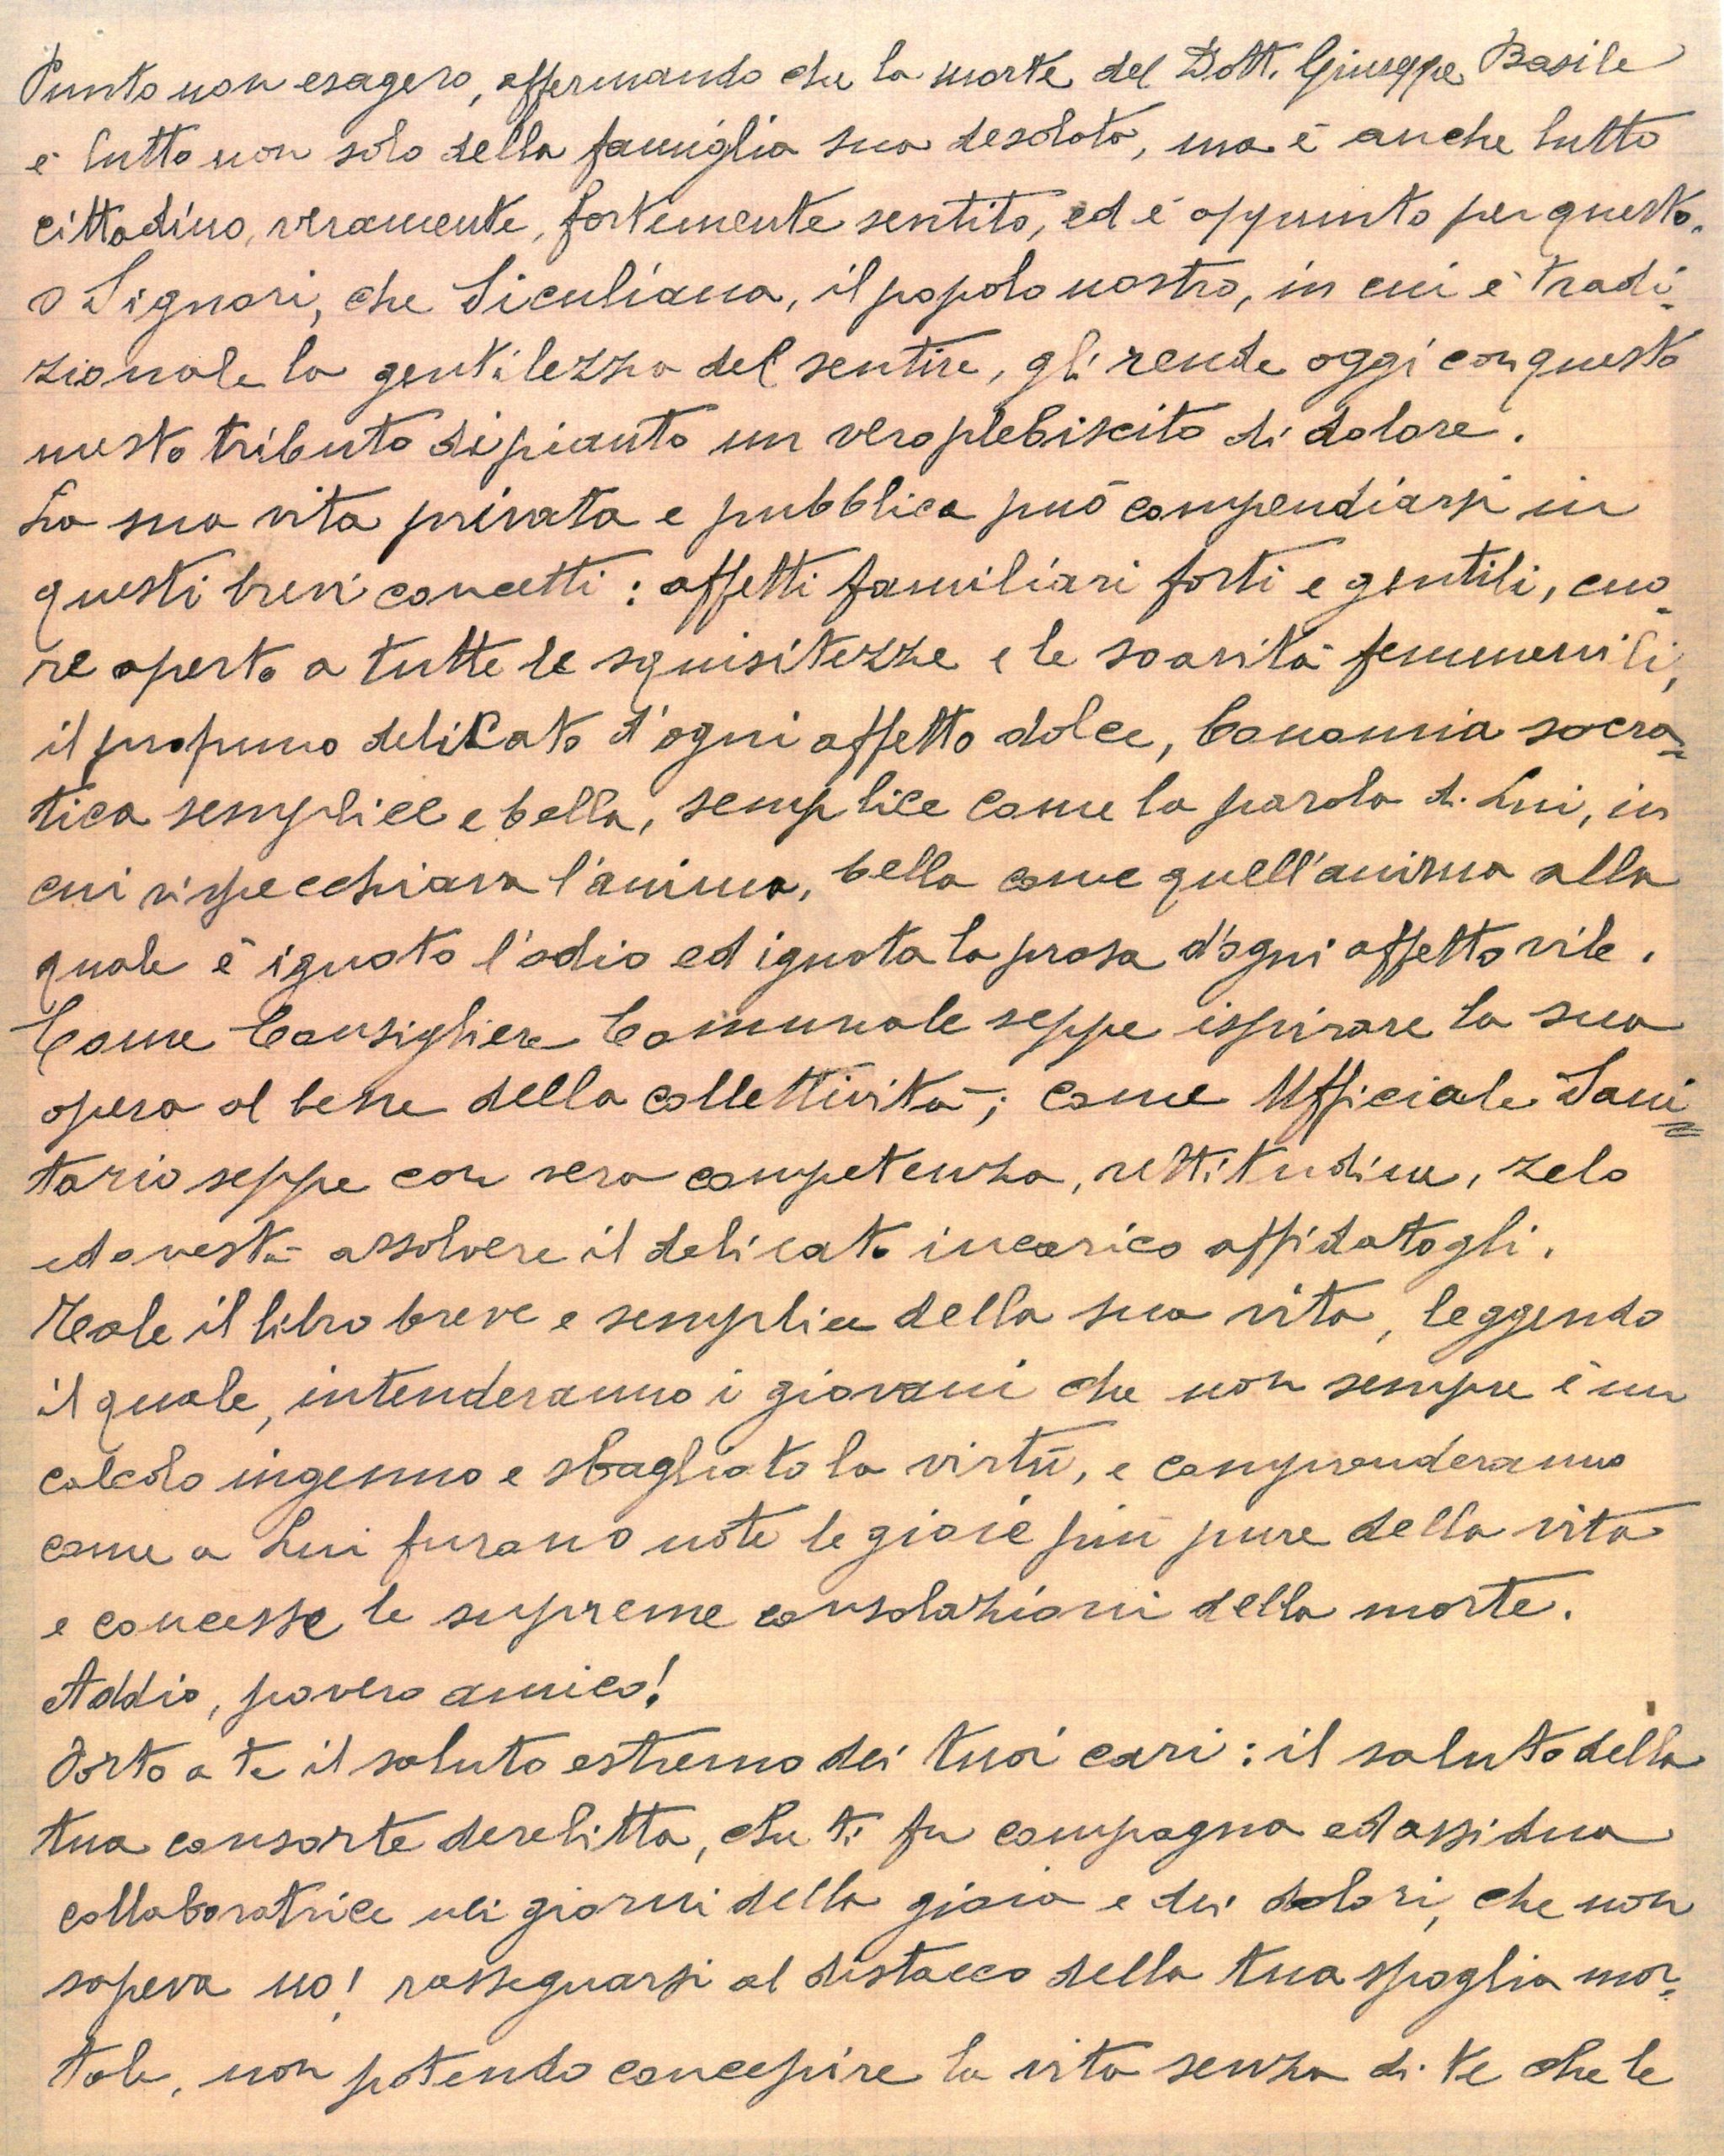 Punto non esagero, affermando che la morte del Dott. Giuseppe Basile
è lutto non solo della famiglia sua desolata, ma è anche lutto
cittadino, veramente, fortemente sentito, ed è appunto per questo,
o Signori, che Siculiana, il popolo nostro, in cui è tradi-
zionale la gentilezza del sentire, gli rende oggi con questo
mesto tributo di pianto un vero plebiscito di dolore.
La sua vita privata e pubblica può compendiarsi in
questi brevi concetti: affetti familiari forti e gentili, cuo-
re aperto a tutte le squisitezze e le soavità femmenili,
il profumo delicato d'ogni affetto dolce, bonomia socra-
tica semplice e bella, semplice come la parola di Lui, in
cui rispecchiava l'anima, bella come quell'anima alla
quale è ignoto l'odio ed ignota la prosa d'ogni affetto vile.
Come Consigliere Comunale seppe ispirare la sua
opera al bene della collettività; come Ufficiale Sani-
tario seppe con vera competenza, rettitudine, zelo
ed onestà assolvere il delicato incarico affidatogli.
Reale il libro breve e semplice della sua vita, leggendo
il quale, intenderanno i giovani che non sempre è un
calcolo ingenuo e sbagliato la virtù, e comprenderanno
come a Lui furano note le gioie più pure della vita
e concesse le supreme consolazioni della morte.
Addio, povero amico!
Porto a te il saluto estremo dei tuoi cari: il saluto della
tua consorte derelitta, che ti fu compagna ed assidua
collaboratrice nei giorni della gioia e dei dolori, che non
sapeva no! rassegnarsi al distacco della tua spoglia mor-
tale, non potendo concepire la vita senza di te che le